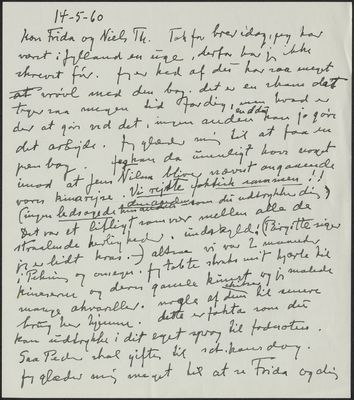 14-5-60
Kære Frida og Niels Th. Tak for brev idag, jeg har
været i Jylland en uge, derfor har jeg ikke
skrevet før. Jeg er ked af du har saa meget
at vrøvl med den bog. det er en skam det
tager saa megen tid for dig, men hvad er
der at gøre ved det, ingen anden kan jo gøre
endda
det arbejde. Jeg glæder mig til at faa en
pæn bog. Jeg kan da umuligt have noget
imod at Jens Nilsen bliver nævnt angaaende
vores kinarejse. Vi rejste faktisk sammen!!
(ingen ledsagede som du udtrykker dig)
Det var et lifligt samvær mellem alle de
straalende herligheder. undskyld. (Birgitte siger
jeg er lidt kras.) altsaa vi var 2 maaneder
i Peking og omegn. Jeg tabte straks mit hjærte til
kineserne og deres gamle kunst og jeg malede
mange akvareller. nogle af dem til senere
brug her hjemme. dette er fakta som du
kan udtrykke i dit eget sprog til fodnoten.
Saa Peder skal giftes til
Jeg glæder mig meget til at se Frida og dig